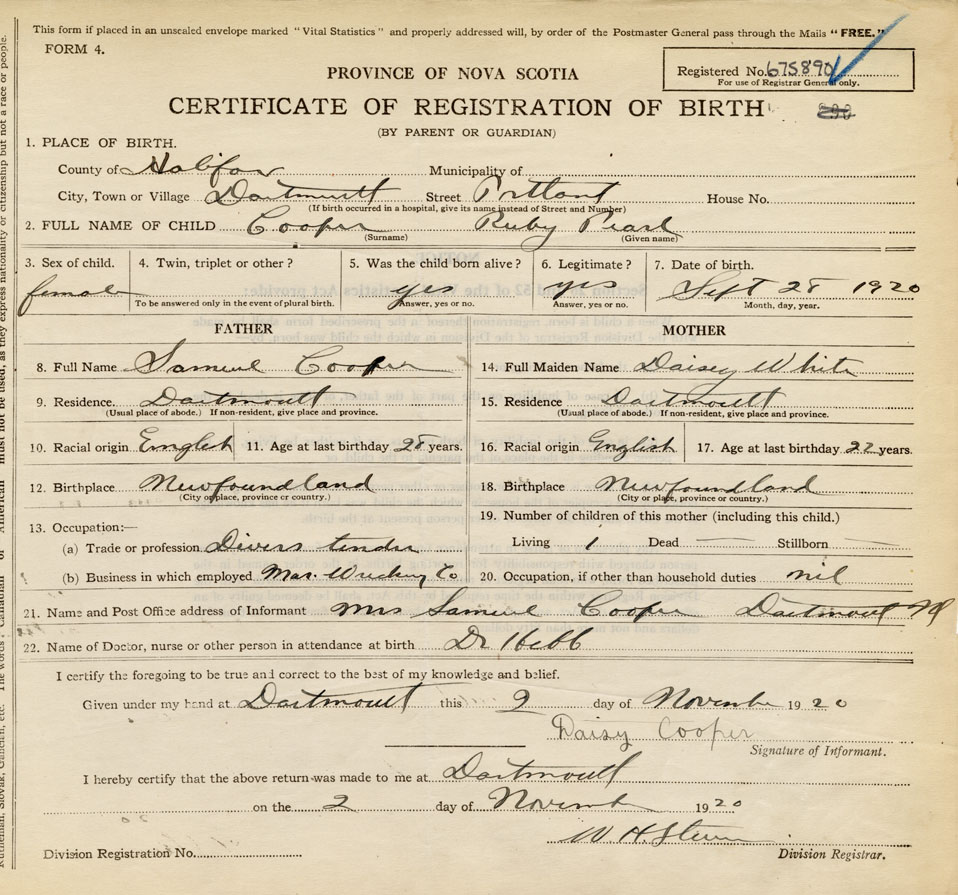 This form if placed in an unscaled envelope marked "Vital Statistics" and properly addressed will, by order of the Postmaster General pass through the Mails "FREE."
FORM 4.
Registered No. 675890
For use of Registrar General only.
PROVINCE OF NOVA SCOTIA
CERTIFICATE OF REGISTRATION OF BIRTH
(BY PARENT OR GUARDIAN)
1. PLACE OF BIRTH.
County of Halifax Municipality of
City, Town or Village Dartmouth Street Portland House No.
(If birth occurred in a hospital, give its name instead of Street and Number)
2. FULL NAME OF CHILD Cooper Ruby Pearl
(Surname) (Given name)
3. Sex of child. 4. Twin, triplet or other? 5. Was the child born alive? 6. Legitimate? 7. Date of birth.
female yes yes Sept 28 1920
To be answered only in the event of plural birth. Answer, yes or no. Answer, yes or no. Month, day, year.
FATHER MOTHER
8. Full Name Samuel Cooper 14. Full Maiden Name Daisey White
9. Residence. Dartmouth 15. Residence Dartmouth
(Usual place of abode.) If non-resident, give place and province. (Usual place of abode.) If non-resident, give place and province.
10. Racial origin English 11. Age at last birthday 28 years. 16. Racial origin English 17. Age at last birthday 22 years.
12. Birthplace Newfoundland 18. Birthplace Newfoundland
(City or place, province or country.) (City or place, province or country.)
13. Occupation:— 19. Number of children of this mother (including this child.)
(a) Trade or profession Divers tender Living 1 Dead — Stillborn —
(b) Business in which employed Mar. Wrecking Co 20. Occupation, if other than household duties nil
21. Name and Post Office address of Informant Mrs Samuel Cooper Dartmouth
22. Name of Doctor, nurse or other person in attendance at birth Dr Hebb
I certify the foregoing to be true and correct to the best of my knowledge and belief.
Given under my hand at Dartmouth this 2 day of November 1920
Daisy Cooper
Signature of Informant.
I hereby certify that the above return was made to me at Dartmouth
on the 2 day of November 1920
W H
Division Registration No. Division Registrar.